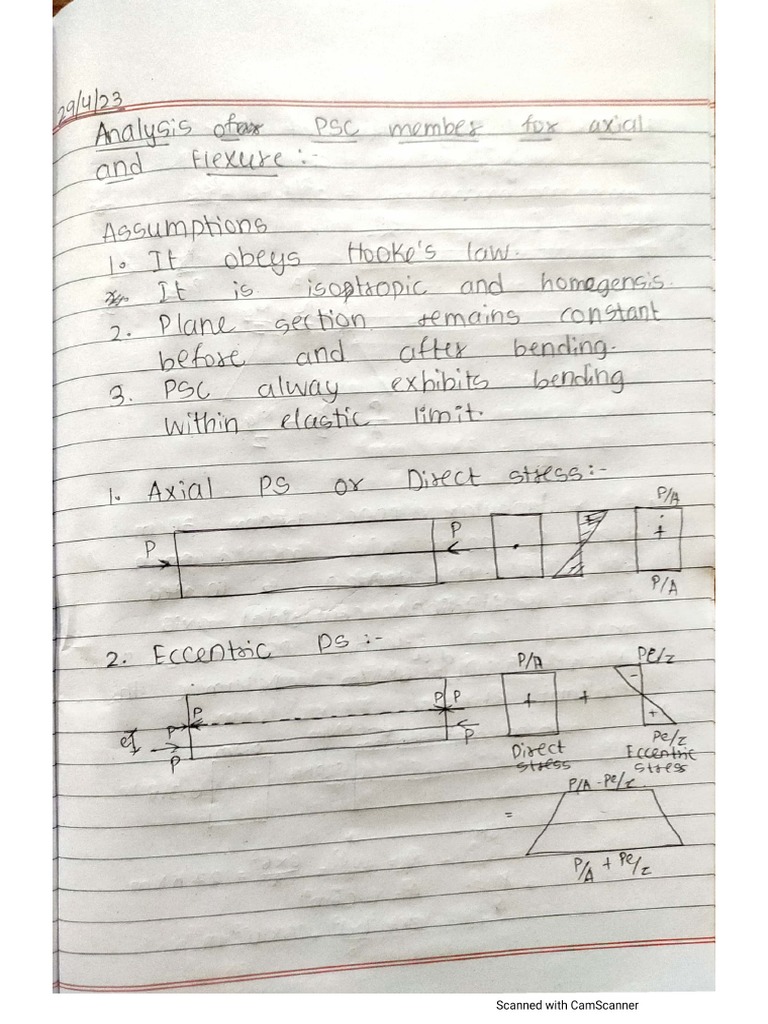 29/4/23
Analysis of PSC member for axial
and flexure:-
Assumptions
1. It obeys Hooke's law.
It is isoptropic and homogensis.
2. Plane section remains constant
before and after bending.
3. PSC alway exhibits bending
within elastic limit.
1. Axial PS or Direct stress:-
P/A
P P +
P/A
2. Eccentric PS:-
P/A Pe/z
P P P + + -
e P P +
P Pe/z
Direct Eccentric
stress stress
P/A - Pe/z
=
P/A + Pe/z
Scanned with CamScanner